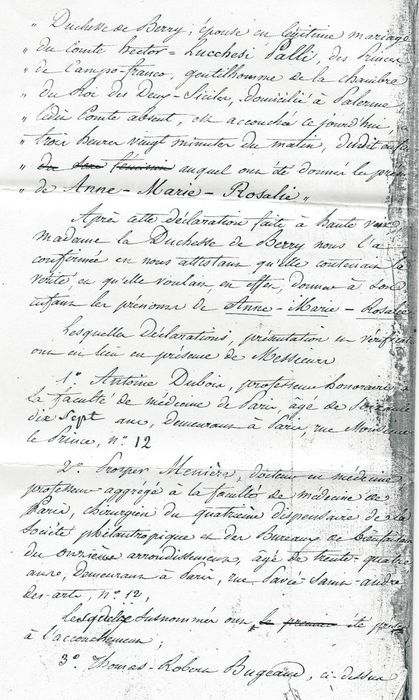 " Duchesse de Berry; épouse en légitime mariage
" du Comte hector = Lucchesi Palli, des Princes
" de Campo-franco, gentilhomme de la chambre
" du Roi des Deux-Siciles, domicilié à Palerme,
" ledit Comte absent, est accouchée ce jourd'hui,
" trois heures vingt minutes du matin, dudit enfant
" du sexe féminin auquel ont été donné les prénoms
" de Anne-Marie-Rosalie "
Après cette déclaration faite à haute voix
madame la Duchesse de Berry nous l'a
confirmée en nous attestant qu'elle contenait la
vérité et qu'elle voulait en effet, donner à son
enfant les prénoms de Anne-Marie-Rosalie
Lesquelles Déclarations, présentation et vérification
ont eu lieu en présence de Messieurs
1° Antoine Dubois, professeur honoraire à
la faculté de médecine de Paris, âgé de soixante
dix sept ans, demeurant à Paris, rue Monsieur
le Prince, n° 12
2° Prosper Menière, docteur en médecine
professeur aggrégé à la faculté de médecine de
Paris, chirurgien du quatrième dispensaire de la
Société philantropique et des Bureaux de bienfaisance
du onzième arrondissement, âgé de trente-quatre
ans, demeurant à Paris, rue Pavée Saint-andré
des-arts, n° 12,
Lesquels susnommés ont, le premier été
à l'accouchement;
3° Thomas-Robert Bugeaud, ci-dessus